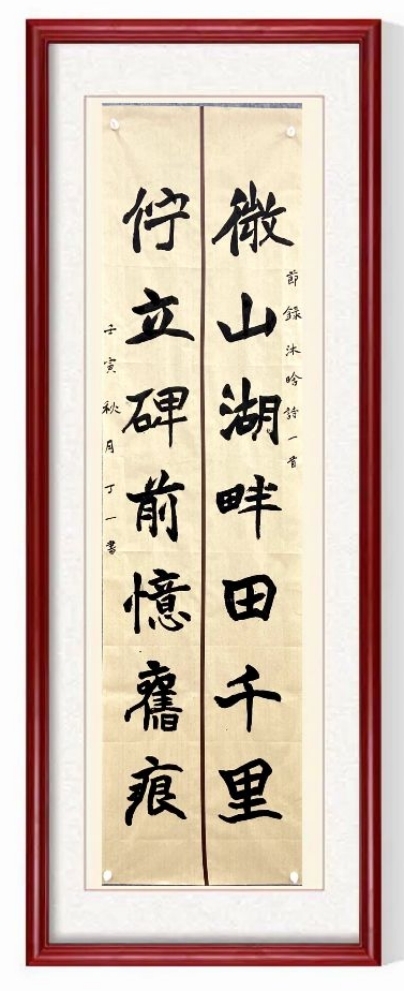 節錄沐晗詩一首
微山湖畔田千里
佇立碑前憶舊痕
壬寅秋月丁一書